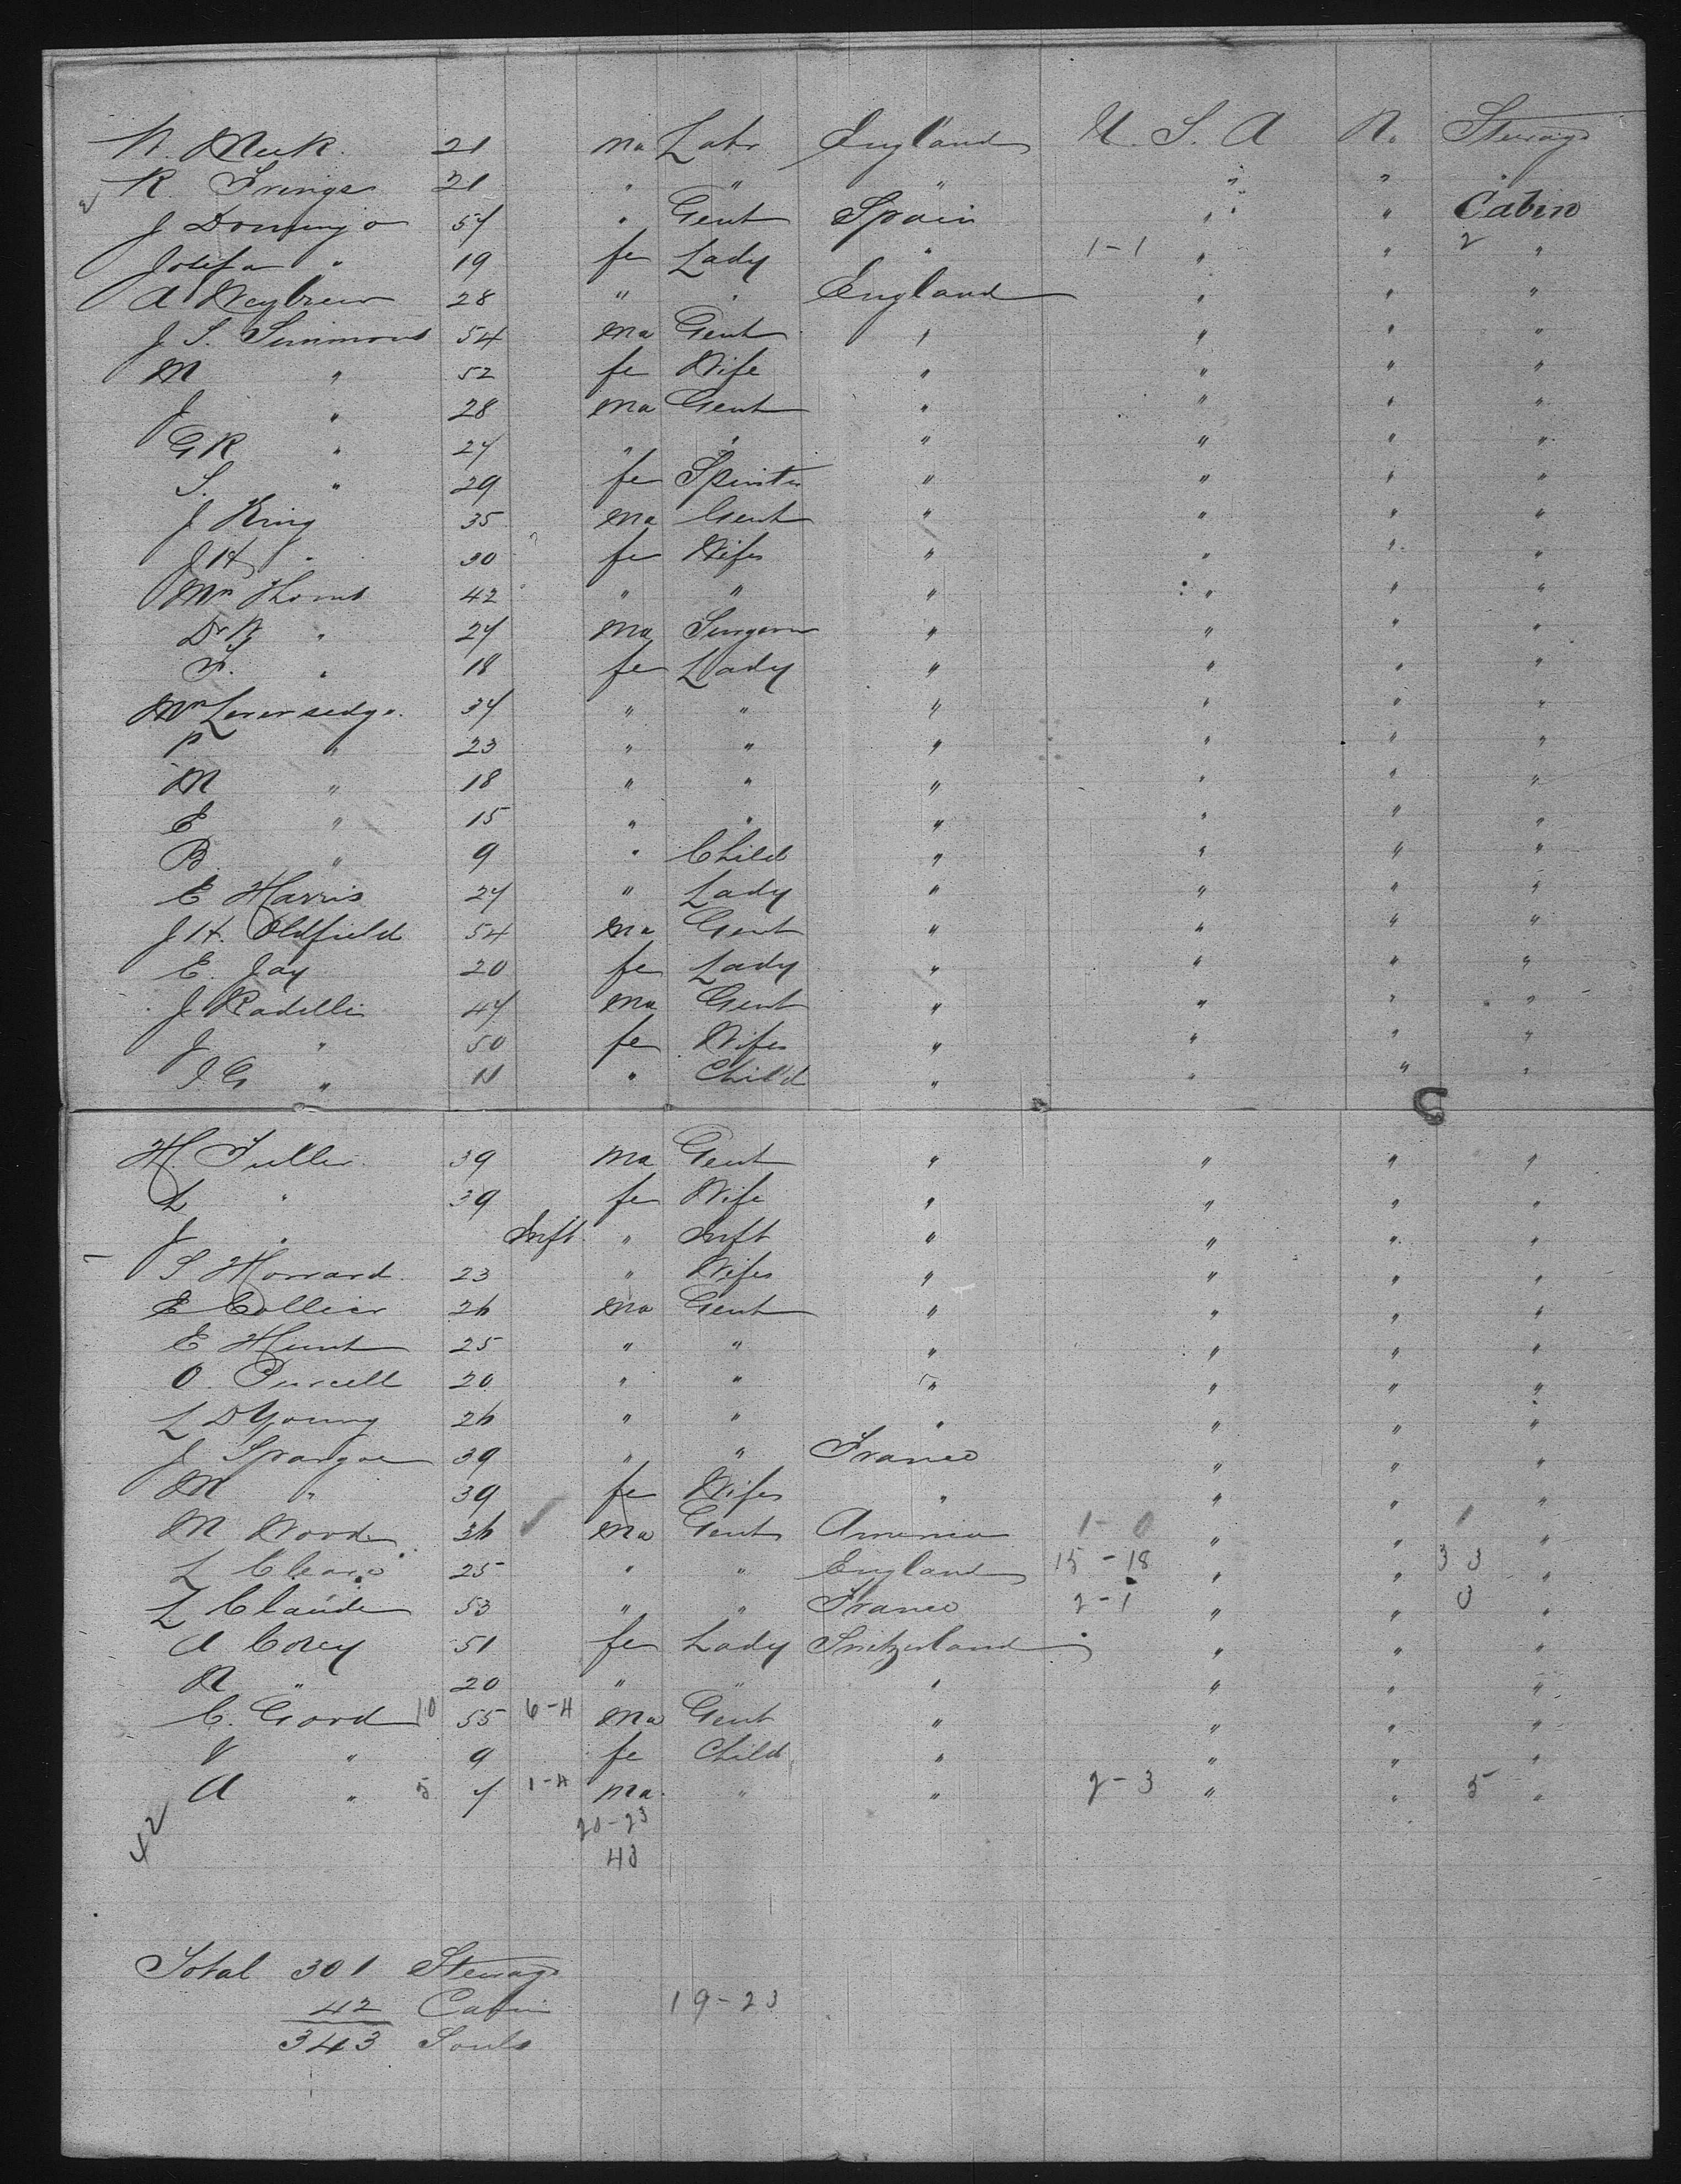 W. Meek 21 ma Labr England U. S. A No Steerage
R. Frings 21 " " " " " "
J Domingo 57 " Gent Spain " " Cabin
Josefa " 19 fe Lady " 1-1 " " 2 "
A Weybrew 28 " " England " " "
J. S. Simmons 54 ma Gent " " " "
M " 52 fe Wife " " " "
J " 28 ma Gent " " " "
G R " 27 " " " " " "
S. " 29 fe Spinster " " " "
J King 35 ma Gent " " " "
J H " 30 fe Wife " " " "
Mrs Thoms 42 " " " " " "
Dr W " 27 ma Surgeon " " " "
F. " 18 fe Lady " " " "
Mrs Leversedge 37 " " " " " "
P " 23 " " " " " "
M " 18 " " " " " "
E " 15 " " " " " "
B " 9 " Child " " " "
E Harris 27 " Lady " " " "
J. H. Oldfield 54 ma Gent " " " "
E. Jay 20 fe Lady " " " "
J Radelli 47 ma Gent " " " "
J " 50 fe Wife " " " "
J. G " 11 " Child " " " "
H. Fuller 39 ma Gent " " " "
L " 39 fe Wife " " " "
J " Inft " Inft " " " "
S Howard 23 " Wife " " " "
E Collier 26 ma Gent " " " "
E Hunt 25 " " " " " "
O. Purcell 20 " " " " " "
L D Young 26 " " " " " "
J Spargoe 39 " " France " " "
M " 39 fe Wife " " " "
M Wood 36 ma Gent America 1-0 " " 1 "
L Cleave 25 " " England 15-18 " " 33 "
L Claude 53 " " France 2-1 " " 3 "
A Corey 51 fe Lady Switzerland " " "
R " 20 " " " " " "
C. Gord 10 55 6-4 ma Gent " " " "
V " 9 fe Child " " " "
A " 5 7 1-4 ma " " 2-3 " " 5 "
42 20-23
43
Total 301 Steerage
42 Cabin 19-23
343 Souls